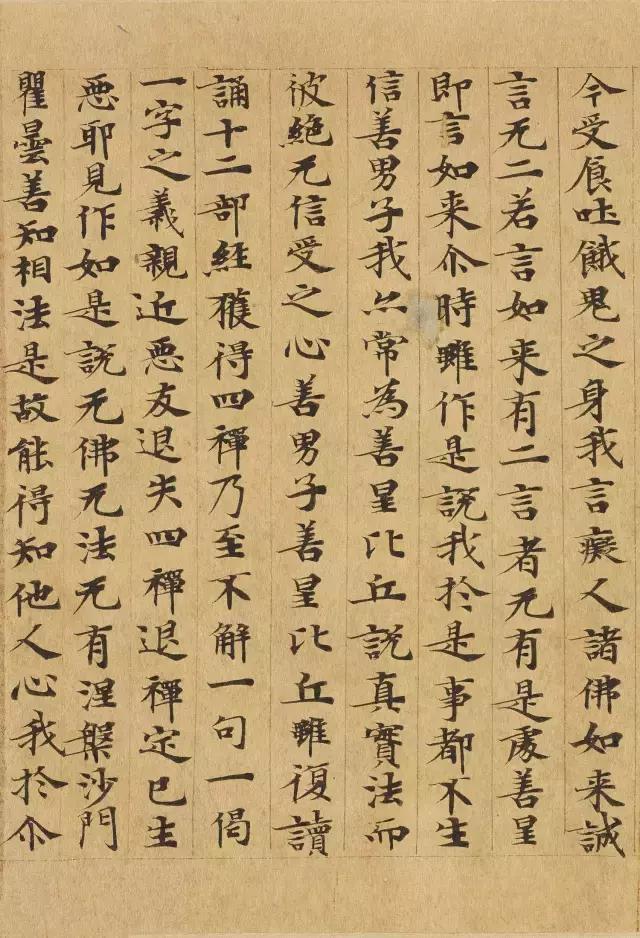 今受飡吐餓鬼之身我言癡人諸佛如来誠
言无二若言如来有二言者无有是處善星
即言如来尒時雖作是説我於是事都不生
信善男子我亦常為善星比丘説真實法而
彼絶无信受之心善男子善星比丘雖復讀
誦十二部経獲得四禪乃至不解一句一偈
一字之義親近惡友退失四禪退禪定已生
惡耶見作如是説无佛无法无有涅槃沙門
瞿曇善知相法是故能得知他人心我於尒